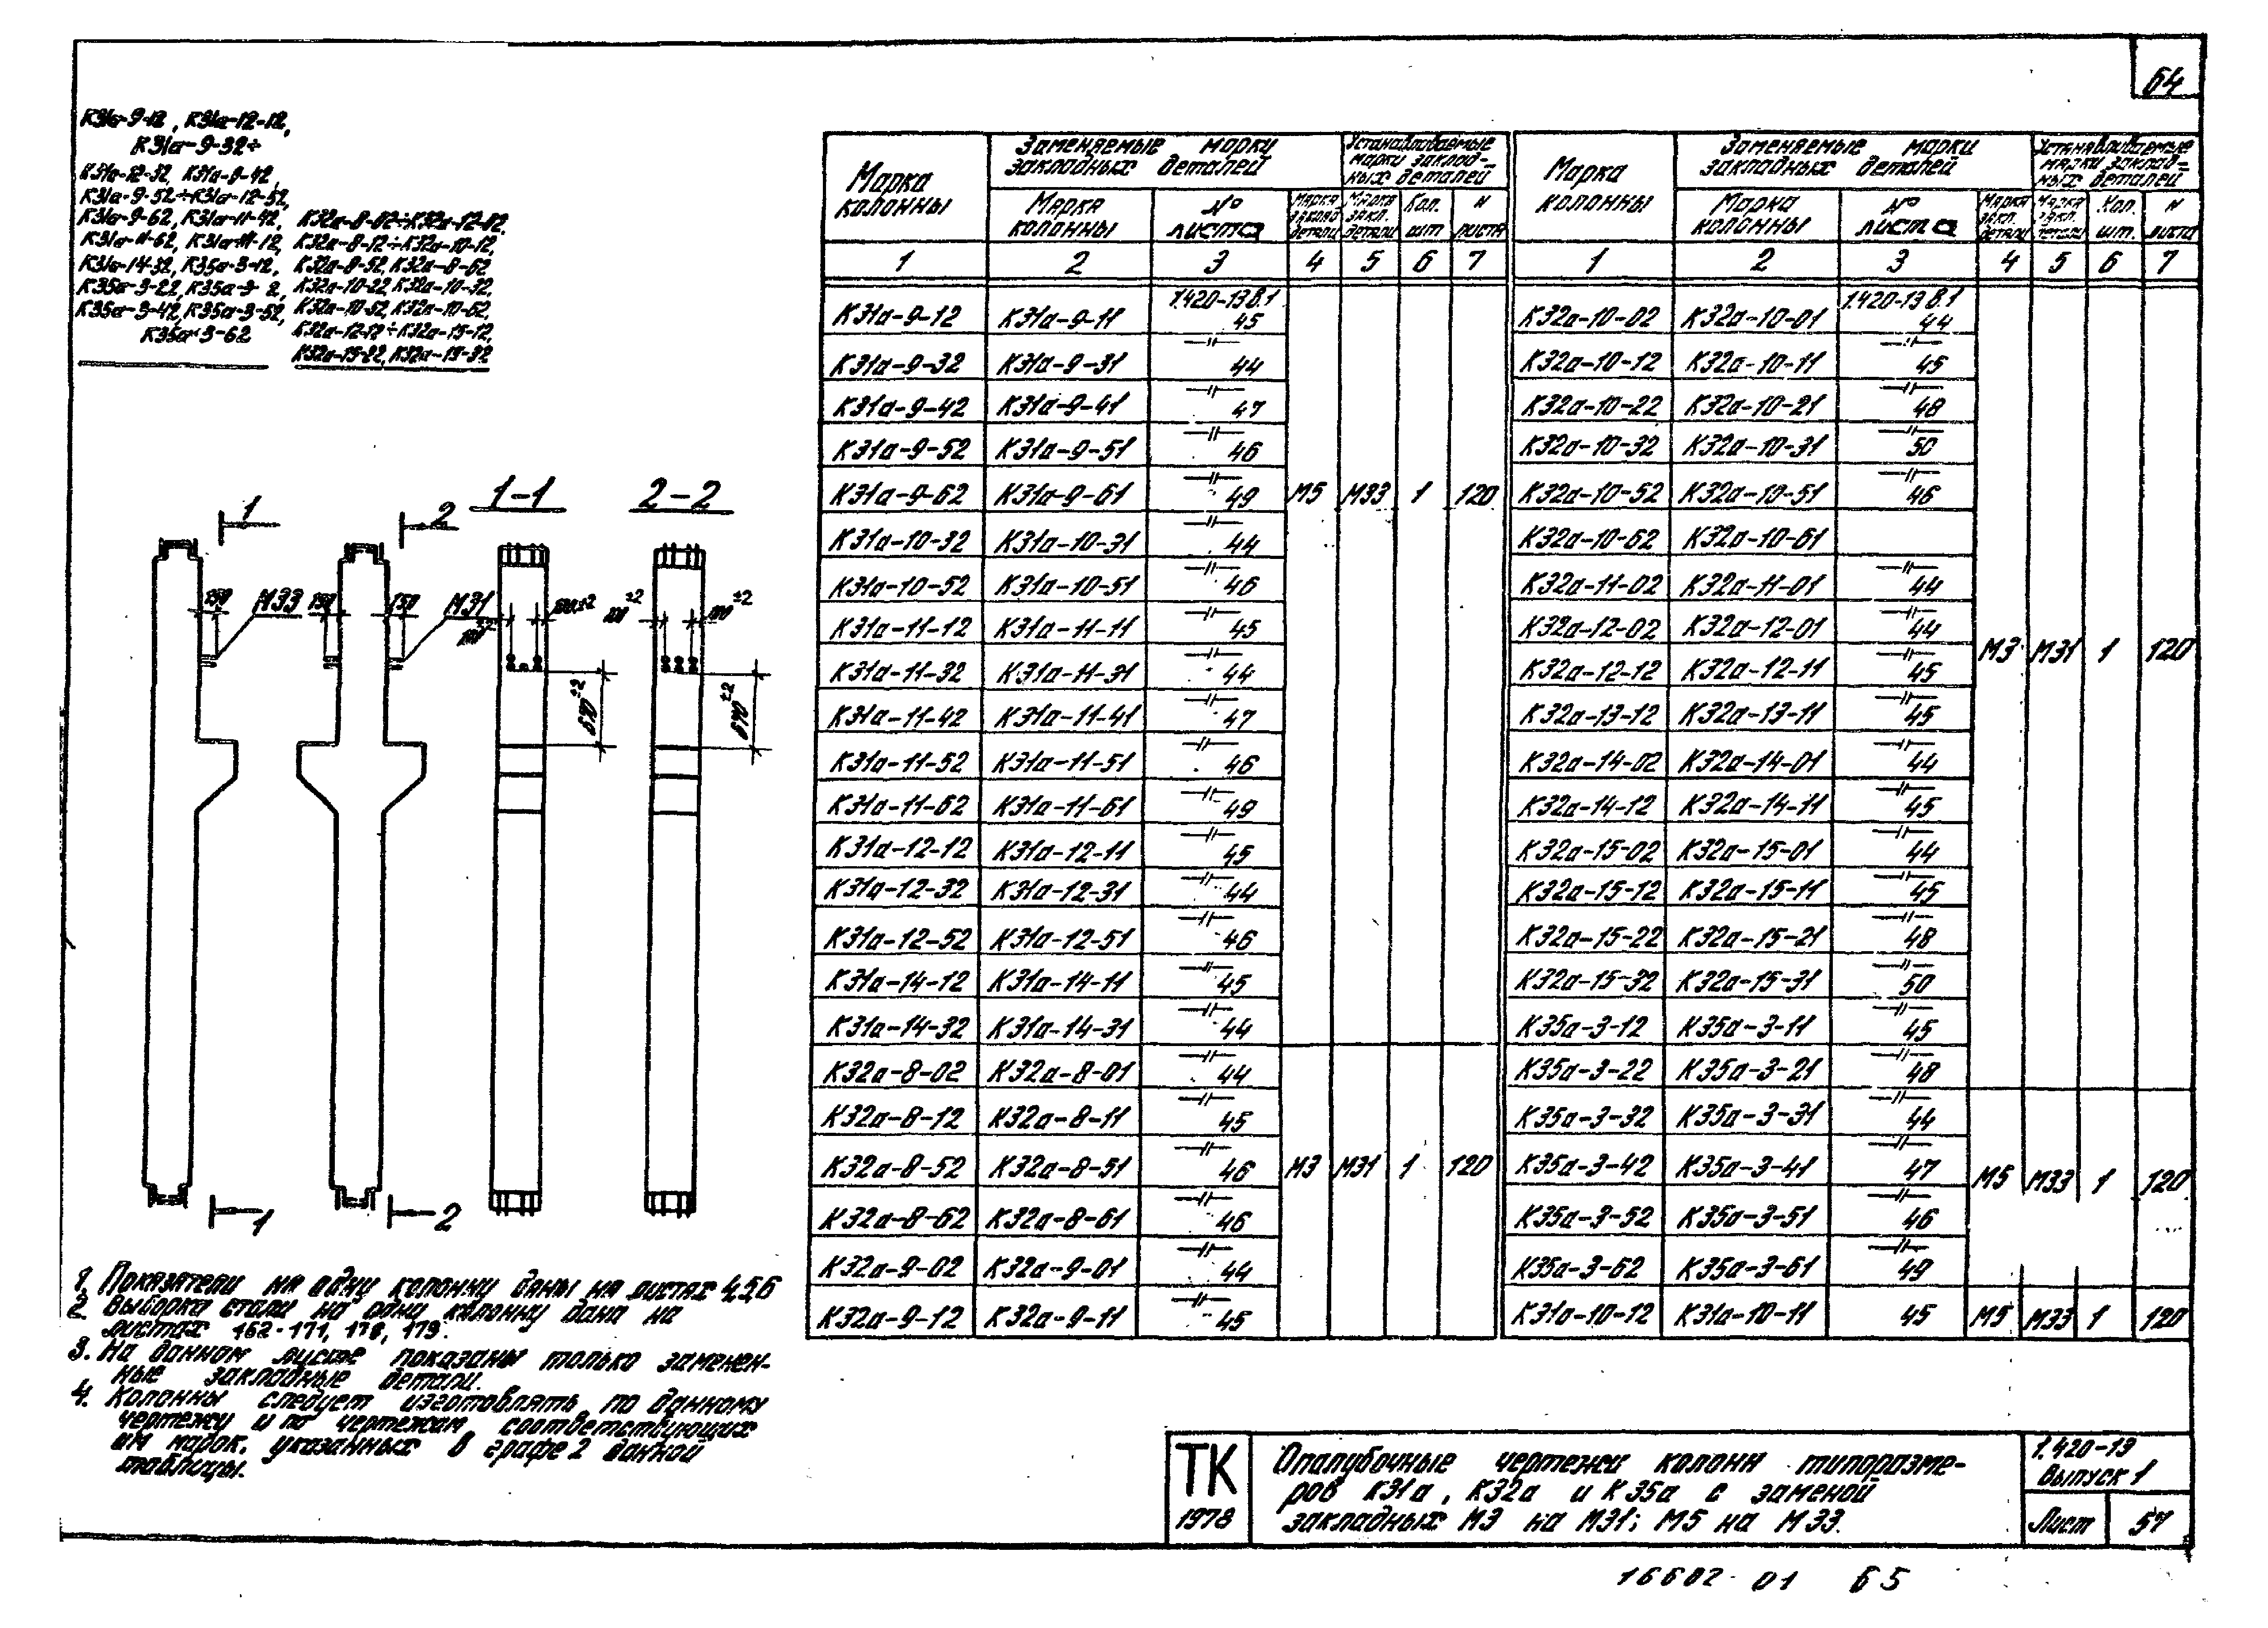 64
К31а-9-12, К31а-12-12,
К31а-9-32÷
К31а-12-32, К31а-9-42
К31а-9-52÷К31а-12-52,
К31а-9-62, К31а-11-42,
К31а-11-62, К31а-14-12,
К31а-14-32, К35а-3-12,
К35а-3-22, К35а-3- 2,
К35а-3-42, К35а-3-52,
К35а-3-62
К32а-8-02÷К32а-12-02,
К32а-8-12÷К32а-10-12,
К32а-8-52, К32а-8-62
К32а-10-22, К32а-10-32,
К32а-10-52, К32а-10-62,
К32а-12-12÷К32а-15-12,
К32а-15-22, К32а-15-32
1 2 1-1 2-2
150 М33 150 150 М31 100±2 100±2 100±2 100±2
690±2 690±2
1 2
1. Показатели на одну колонну даны на листах 4,5,6
2. Выборка стали на одну колонну дана на
листах 162-171, 178, 179.
3. На данном листе показаны только заменен-
ные закладные детали.
4. Колонны следует изготовлять по данному
чертежу и по чертежам соответствующих
им марок, указанных в графе 2 данной
таблицы.
Марка колонны
Заменяемые марки закладных деталей
Устанавливаемые марки заклад-ных деталей
Марка колонны
№ листа
Марка заклад детали
Марка закл. детали
Кол. шт
N листа
1 2 3 4 5 6 7
К31а-9-12 К31а-9-11 1.420-13 В.1 45
К31а-9-32 К31а-9-31 —"— 44
К31а-9-42 К31а-9-41 —"— 47
К31а-9-52 К31а-9-51 —"— 46
К31а-9-62 К31а-9-61 —"— 49 М5 М33 1 120
К31а-10-32 К31а-10-31 —"— 44
К31а-10-52 К31а-10-51 —"— 46
К31а-11-12 К31а-11-11 —"— 45
К31а-11-32 К31а-11-31 —"— 44
К31а-11-42 К31а-11-41 —"— 47
К31а-11-52 К31а-11-51 —"— 46
К31а-11-62 К31а-11-61 —"— 49
К31а-12-12 К31а-12-11 —"— 45
К31а-12-32 К31а-12-31 —"— 44
К31а-12-52 К31а-12-51 —"— 46
К31а-14-12 К31а-14-11 —"— 45
К31а-14-32 К31а-14-31 —"— 44
К32а-8-02 К32а-8-01 —"— 44
К32а-8-12 К32а-8-11 —"— 45
К32а-8-52 К32а-8-51 —"— 46 М3 М31 1 120
К32а-8-62 К32а-8-61 —"— 46
К32а-9-02 К32а-9-01 —"— 44
К32а-9-12 К32а-9-11 —"— 45
Марка колонны
Заменяемые марки закладных деталей
Устанавливаемые марки заклад-ных деталей
Марка колонны
№ листа
Марка закл. детали
Марка закл. детали
Кол. шт.
N листа
1 2 3 4 5 6 7
К32а-10-02 К32а-10-01 1.420-13 В.1 44
К32а-10-12 К32а-10-11 —"— 45
К32а-10-22 К32а-10-21 —"— 48
К32а-10-32 К32а-10-31 —"— 50
К32а-10-52 К32а-10-51 —"— 46
К32а-10-62 К32а-10-61
К32а-11-02 К32а-11-01 —"— 44
К32а-12-02 К32а-12-01 —"— 44
М3 М31 1 120
К32а-12-12 К32а-12-11 —"— 45
К32а-13-12 К32а-13-11 —"— 45
К32а-14-02 К32а-14-01 —"— 44
К32а-14-12 К32а-14-11 —"— 45
К32а-15-02 К32а-15-01 —"— 44
К32а-15-12 К32а-15-11 —"— 45
К32а-15-22 К32а-15-21 —"— 48
К32а-15-32 К32а-15-31 —"— 50
К35а-3-12 К35а-3-11 —"— 45
К35а-3-22 К35а-3-21 —"— 48
К35а-3-32 К35а-3-31 —"— 44
К35а-3-42 К35а-3-41 —"— 47 М5 М33 1 120
К35а-3-52 К35а-3-51 —"— 46
К35а-3-62 К35а-3-61 —"— 49
К31а-10-12 К31а-10-11 45 М5 М33 1 120
ТК
1978
Опалубочные чертежи колонн типоразме-
ров К31а, К32а и К35а с заменой
закладных М3 на М31; М5 на М33.
1.420-13
Выпуск 1
Лист 57
16682-01 65